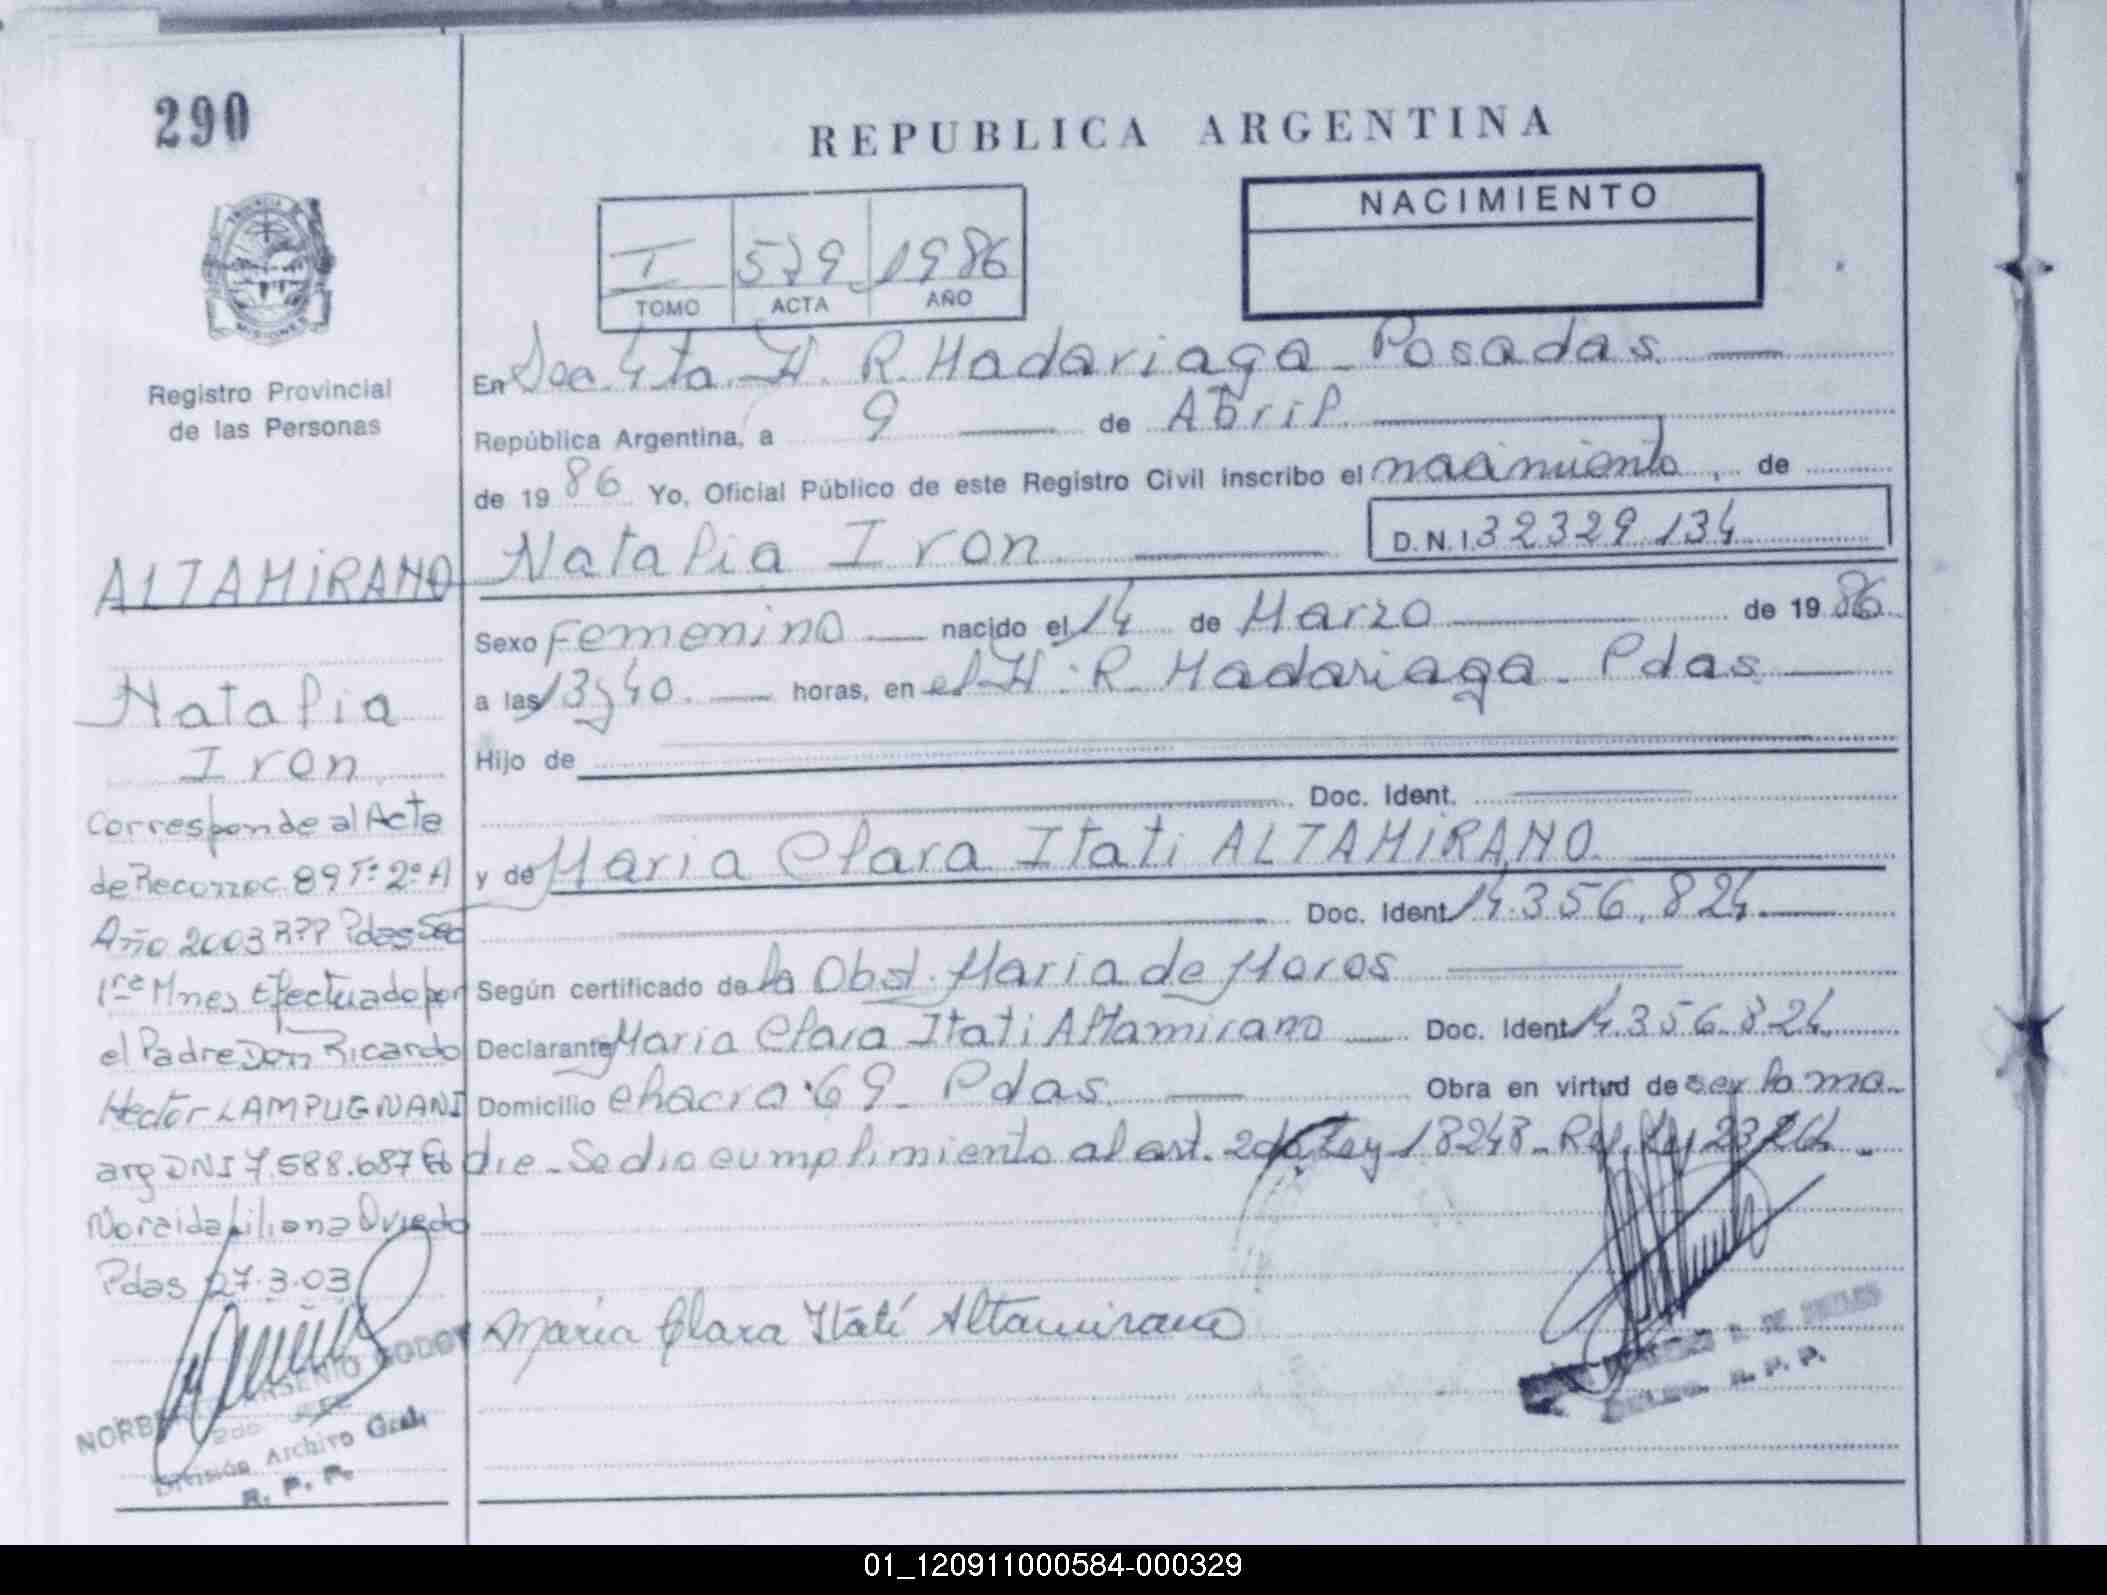 290
REPUBLICA ARGENTINA
NACIMIENTO
I 579 1986
TOMO ACTA AÑO
PROVINCIA DE MISIONES
Registro Provincial
de las Personas
ALTAMIRANO
Natalia
Iron
Corresponde al Acta
de Reconoc. 89 Tº 2º A
Año 2003 RPP Pdas Sec
1ra Mnes Efectuado por
el Padre Don Ricardo
Hector LAMPUGNANI
arg DNI 7.588.687
Noraida Liliana Oviedo
Pdas 27.3.03
ARSENIO GODOY
2do JEFE
División Archivo Gral.
R. P. P.
En Sec. 4ta. H. R. Madariaga - Posadas
República Argentina, a 9 de Abril
de 1986 Yo, Oficial Público de este Registro Civil inscribo el nacimiento, de
Natalia Iron D.N.I. 32329.134
Sexo Femenino nacido el 14 de Marzo de 1986
a las 13 y 40. horas, en el H. R. Madariaga - Pdas
Hijo de
Doc. Ident.
y de Maria Clara Itati ALTAMIRANO
Doc. Ident 14.356.824
Según certificado de la Obst. Maria de Moros
Declarante Maria Clara Itati Altamirano Doc. Ident 14.356.824
Domicilio chacra 69 - Pdas. Obra en virtud de ser la ma-
dre - Se dio cumplimiento al art. 2 Ley 18248 - Ley 23264 -
Maria Clara Itatí Altamirano
R. P. P.
01_120911000584-000329